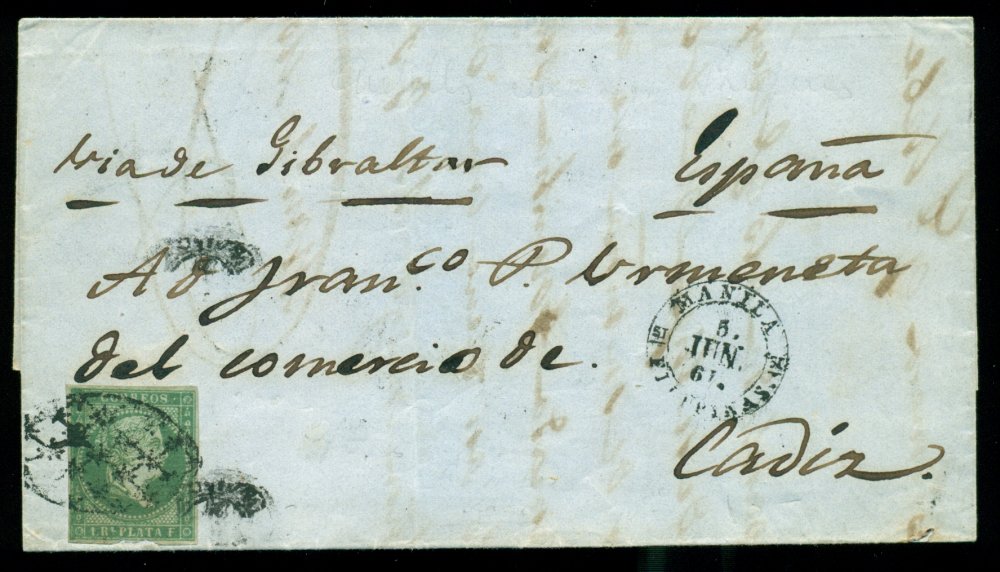 via de Gibraltar España
A D Franco. P. Urmeneta
del comercio de.
MANILA
5.
JUN.
61.
CORREOS
1 RL PLATA F
Cadiz.